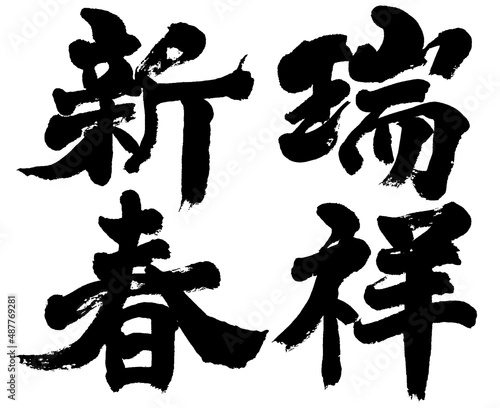 瑞祥
新春
Adobe Stock | #487769281